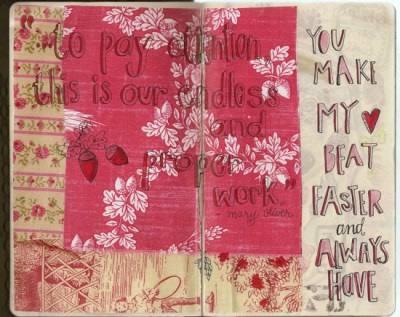 "to pay attention
this is our endless
and
proper
work."
- mary oliver
YOU
MAKE
MY
BEAT
FASTER
and
ALWAYS
HAVE